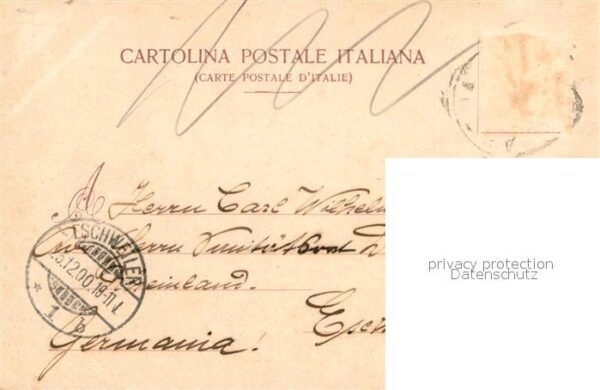 CARTOLINA POSTALE ITALIANA
(CARTE POSTALE D'ITALIE)
Herrn Carl Wilhelm
Herrn Sanitätsrat
Rheinland.
Germania!
ESCHWEILER
12.00
1 b
privacy protection
Datenschutz